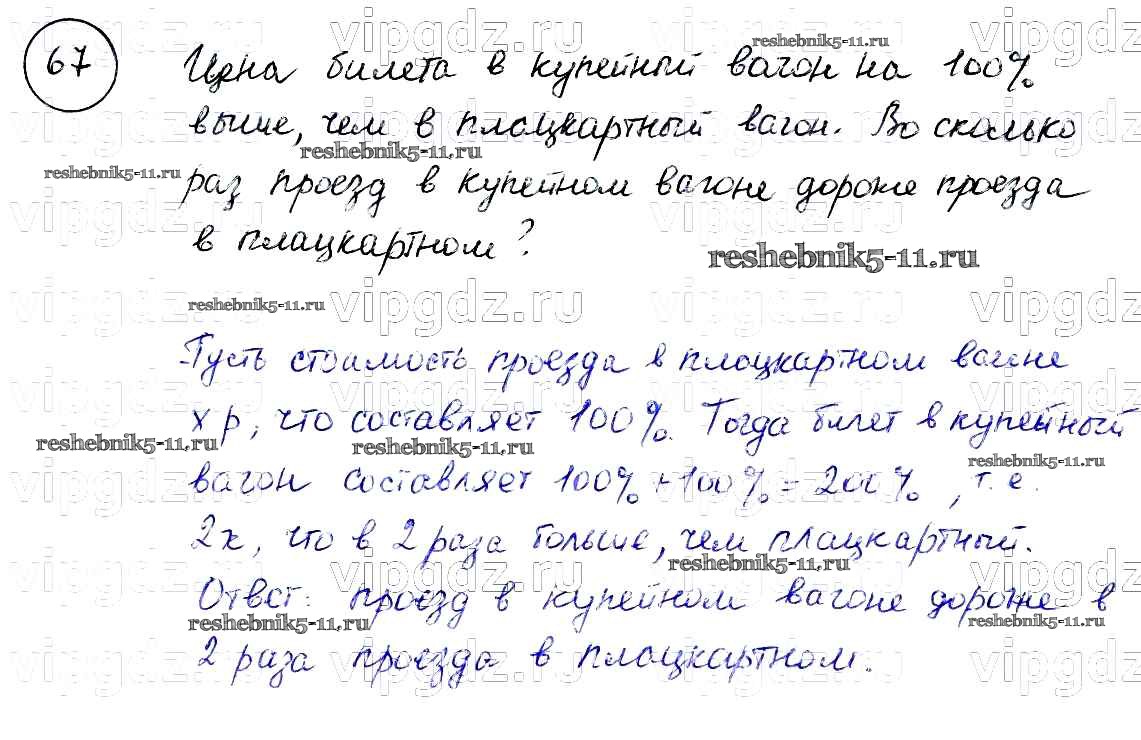 67
Цена билета в купейный вагон на 100%
выше, чем в плацкартный вагон. Во сколько
раз проезд в купейном вагоне дороже проезда
в плацкартном?
Пусть стоимость проезда в плацкартном вагоне
x р, что составляет 100%. Тогда билет в купейный
вагон составляет 100% + 100% = 200%, т.е.
2x, что в 2 раза больше, чем плацкартный.
Ответ: проезд в купейном вагоне дороже в
2 раза проезда в плацкартном.
vipgdz.ru
reshebnik5-11.ru